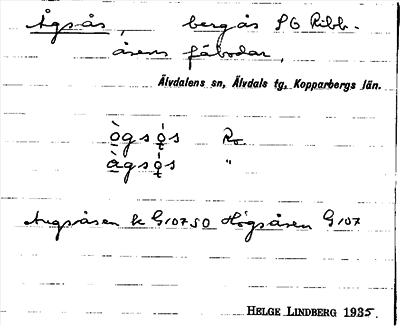 Ågsås, bergås SO Ribb-
åsens fäbodar,
Älvdalens sn, Älvdals tg, Kopparbergs län.
ògsó̱s
àgsó̱s "
Augsåsen k G107SO Högsåsen G107
HELGE LINDBERG 1935.